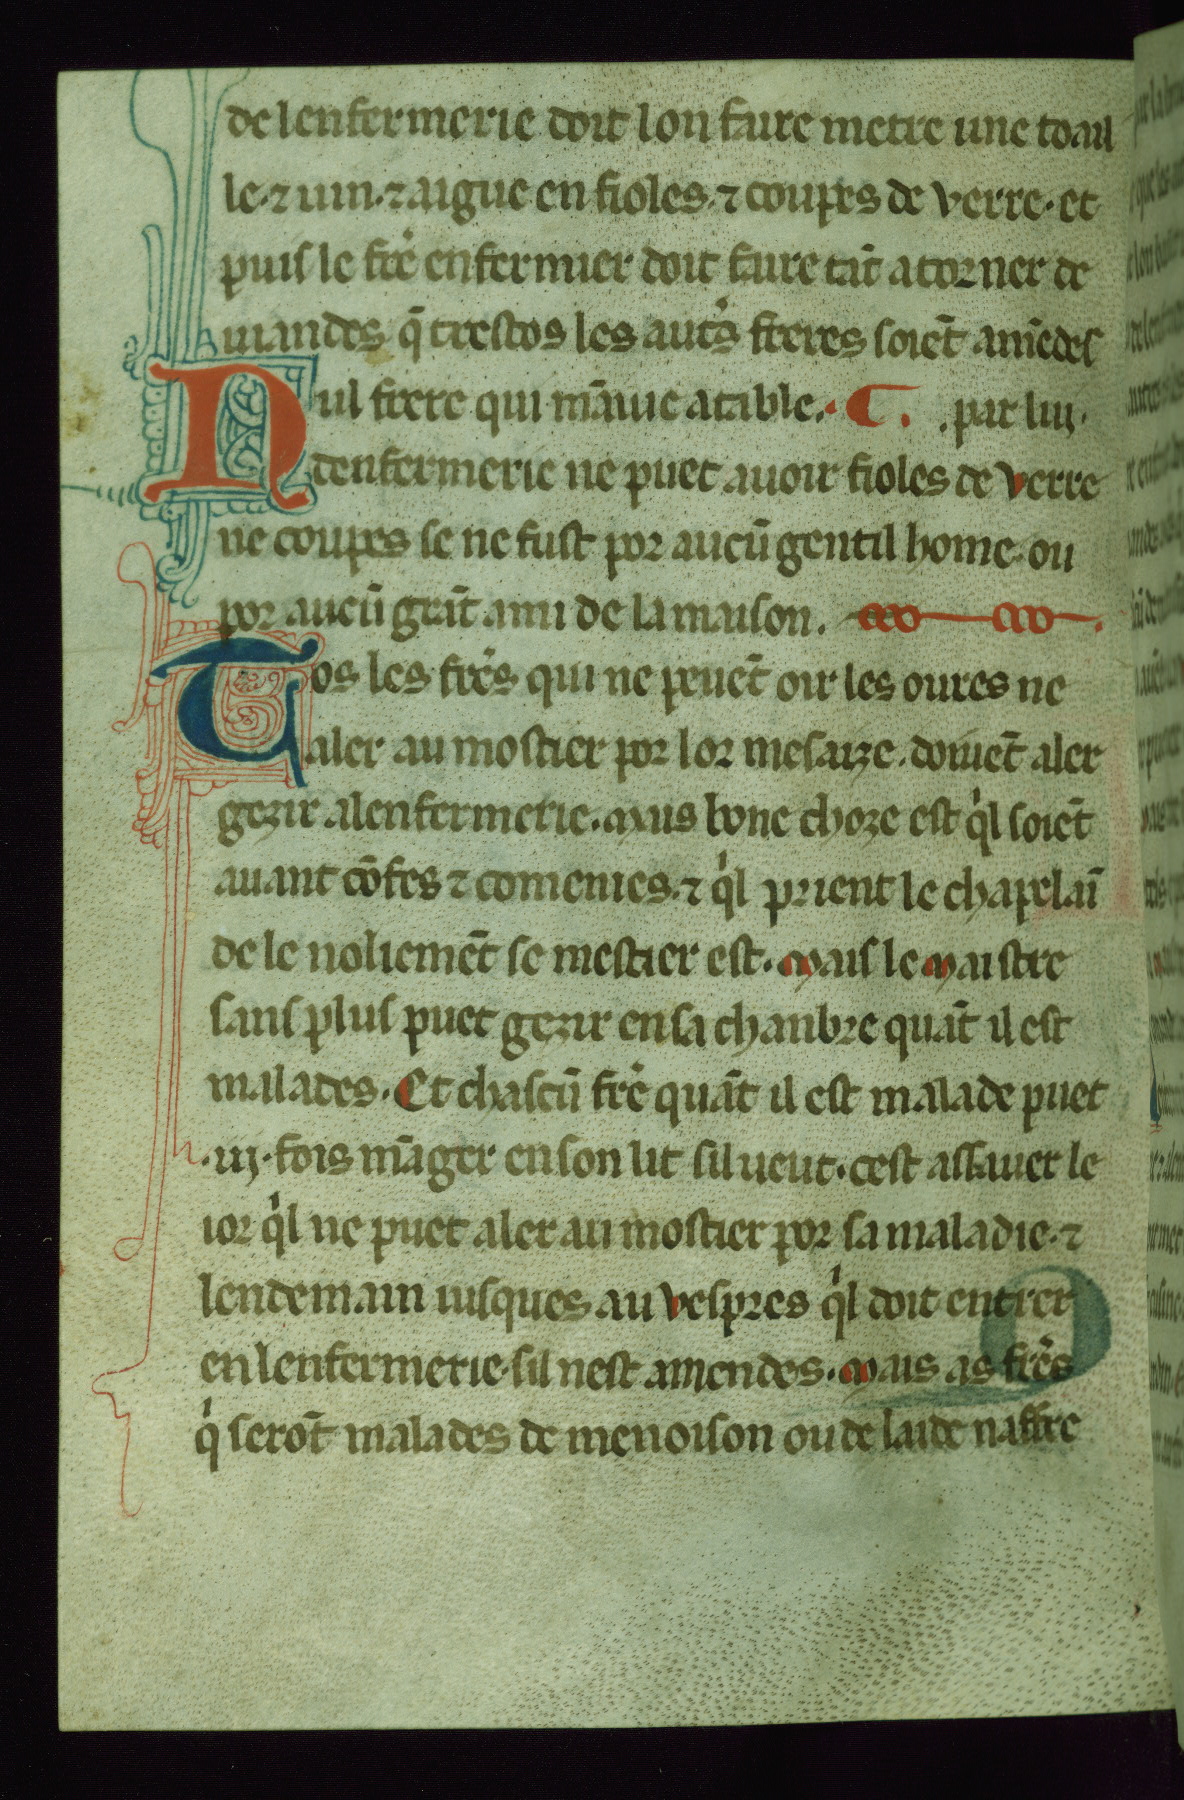 de lenfermerie doit lon faire metre une toail
le·⁊ uin·⁊ aigue en fioles·⁊ coupes de verre·et
puis le fr̄e enfermier doit faire tāt atorner de
uiandes q̄ trestos les aut̾s freres soiēt amēdes
Nul frere qui māiue a table. C. .par lui·
denfermerie ne puet auoir fioles de verre
ne coupes se ne fust por aucū gentil home ou
por aucū grāt ami de la maison.
Tos les fr̄es qui ne peuēt oir les oures ne
aler au mostier por lor mesaize. doiuēt aler
gezir a lenfermerie. mais bone choze est qͥl soiēt
auant cōfes ⁊ comenies.⁊ qͥl prient le chapelaī
de le noliemēt se mestier est. Mais le maistre
sans plus puet gezir en sa chanbre quāt il est
malades. Et chascū fr̄e quāt il est malade puet
·iij· fois māger en son lit sil ueut. cest assauer le
ior qͥl ne puet aler au mostier por sa maladie·⁊
lendemain iusques au vespres qͥl doit entrer
en lenfermerie·sil nest amendes. Mais as fr̄es
qͥ serōt malades de menoison ou de laide naffre